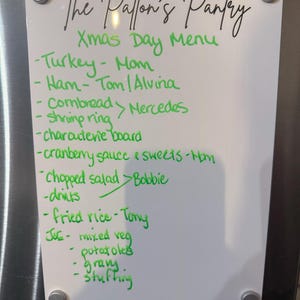 The Patton's Pantry
Xmas Day Menu
- Turkey - Mom
- Ham - Tom/Alvina
- cornbread > Mercedes
- shrimp ring
- charcuterie board
- cranberry sauce & sweets - Mom
- chopped salad > Bobbie
- drinks
- fried rice - Tony
Joe - mixed veg
- potatoes
- gravy
- stuffing